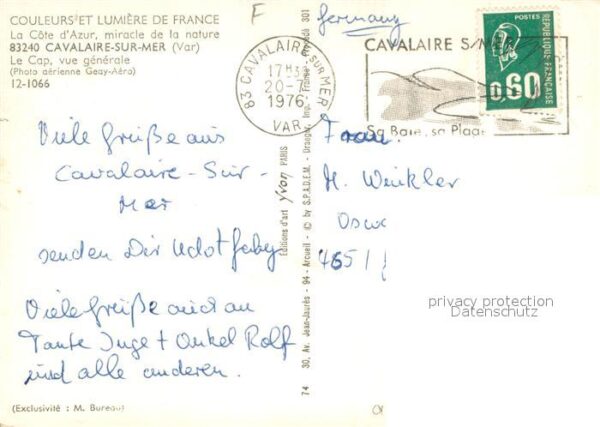 COULEURS ET LUMIÈRE DE FRANCE
La Côte d'Azur, miracle de la nature
83240 CAVALAIRE-SUR-MER (Var)
Le Cap, vue générale
(Photo aérienne Geay-Aéro)
12-1066
F
Germany
83 CAVALAIRE-SUR-MER
17H
20-7
1976
VAR
CAVALAIRE S/MER
Sa Baie, sa Plage
POSTES
0,60
REPUBLIQUE FRANÇAISE
Viele Grüße aus
Cavalaire-Sur-
Mer
senden Dir Udo + Gaby
Viele Grüße auch an
Tante Inge + Onkel Rolf
und alle anderen.
Frau
M. Winkler
465/
privacy protection
Datenschutz
Editions d'art yvon PARIS
74 30, Av. Jean-Jaurès - 94 - Arcueil - © by S.P.A.D.E.M. - Draeger, Imp. - France - 301
(Exclusivité : M. Bureau)